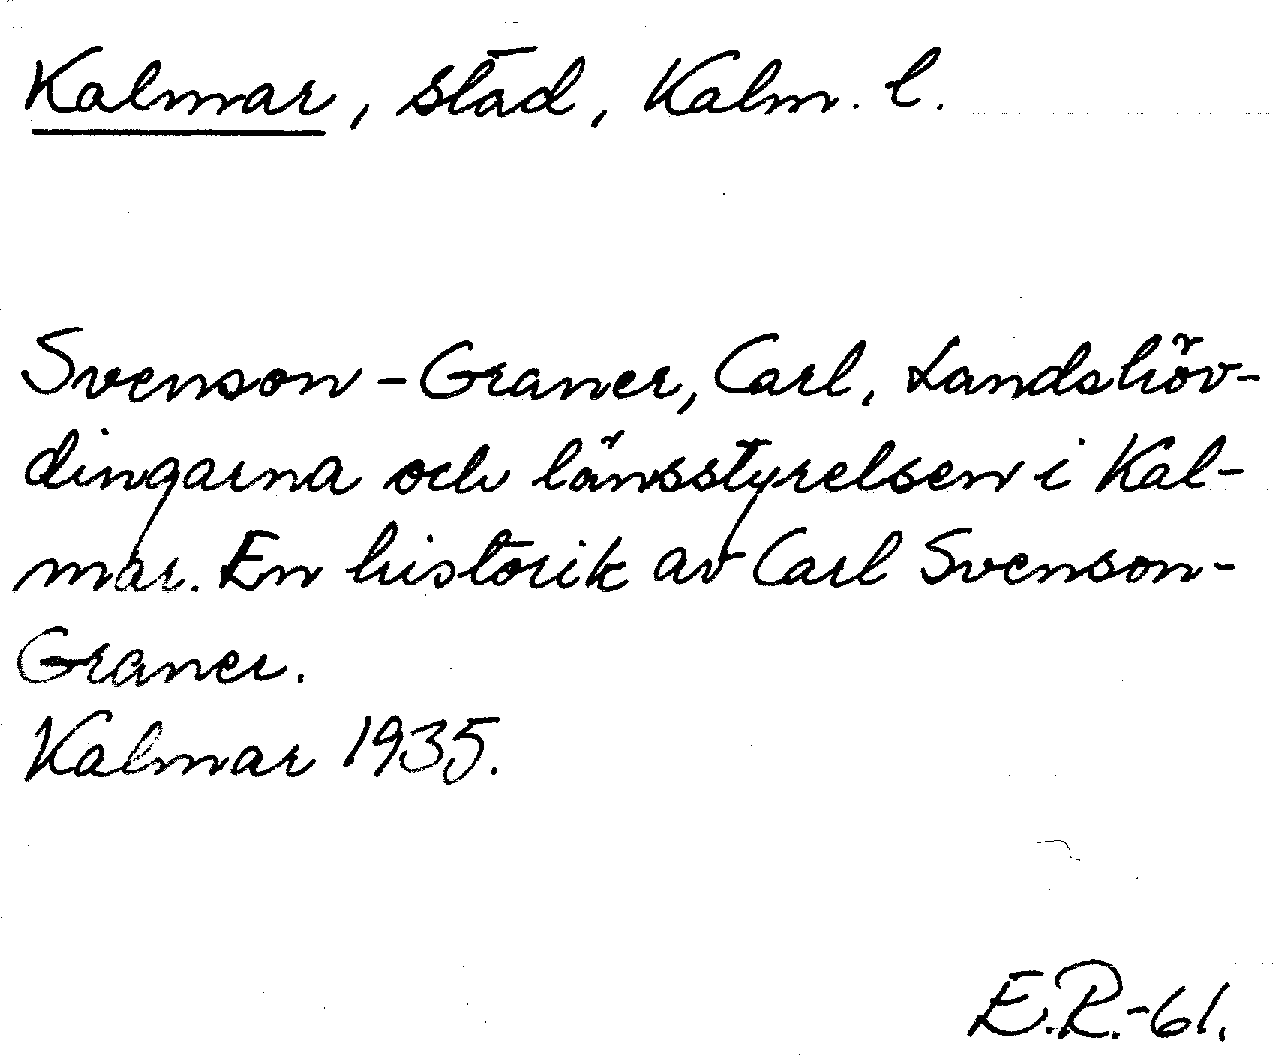 Kalmar, stad, Kalm. l.
Svenson-Graner, Carl, Landshöv-
dingarna och länsstyrelsen i Kal-
mar. En historik av Carl Svenson-
Graner.
Kalmar 1935.
E.R.-61.